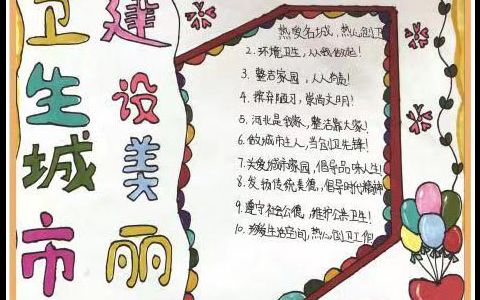 建设美丽
卫生城市
热爱名城,热心创卫
2.环境卫生,从我做起!
3.整洁家园,人人有责!
4.摈弃陋习,崇尚文明!
5.河北是我家,整洁靠大家!
6.做城市主人,当创卫先锋!
7.关爱城市家园,倡导品味人生!
8.发扬传统美德,倡导时代精神
9.遵守社会公德,维护公共卫生!
10.珍惜生活空间,热心创卫工作